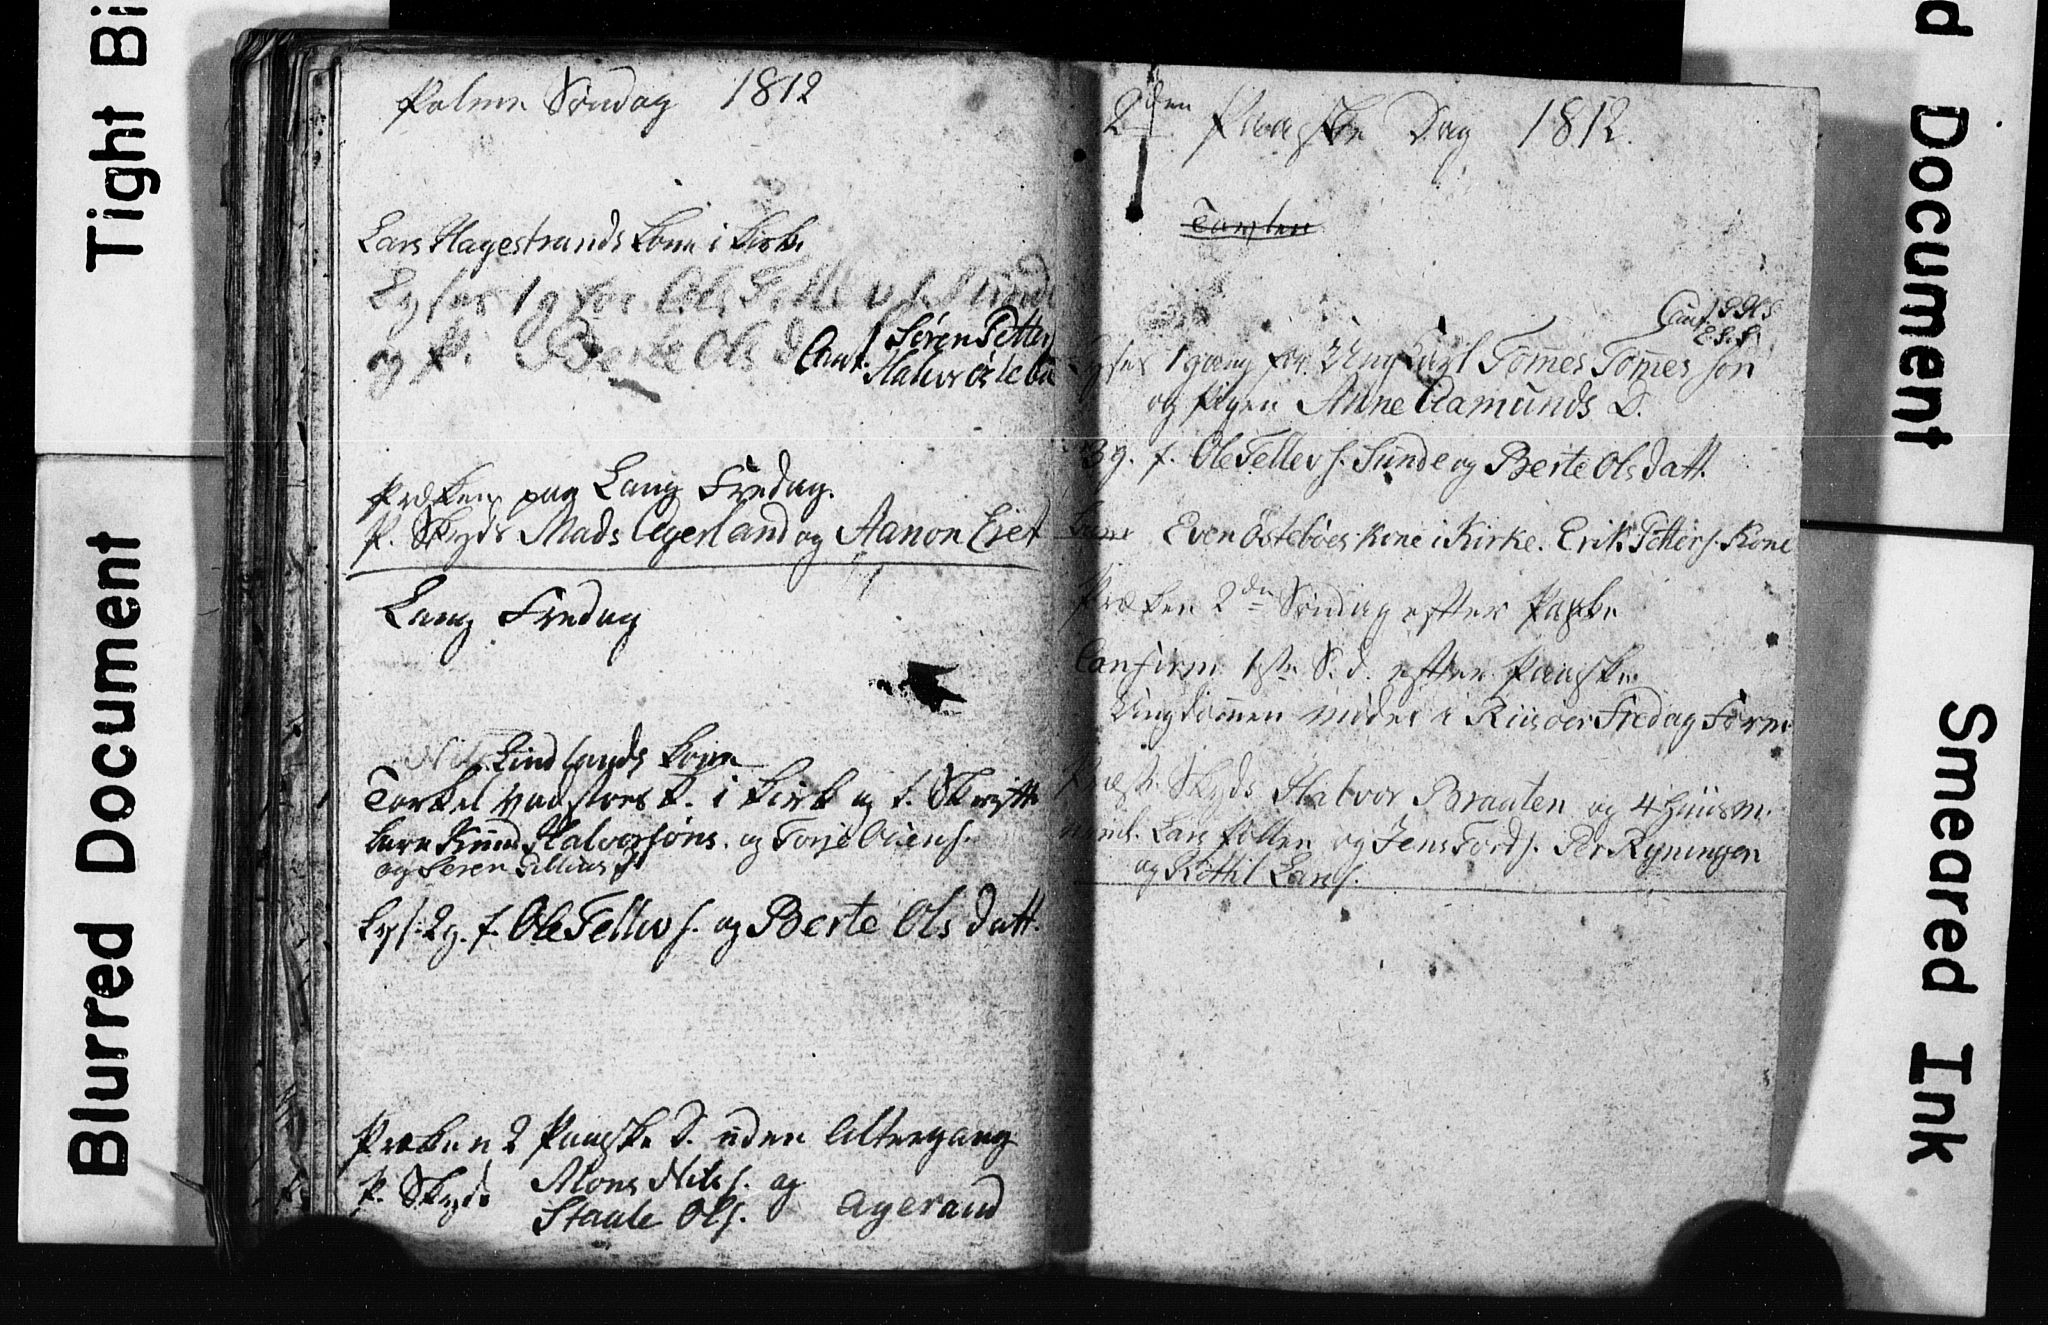 Tight Bi
Blurred Document
Palme Søndag 1812
Lars Hagestrands Kone i Kirke
Lyses 1 g for Ole Tellevs. Sunde
og P. Berte Ols d
Caut. Søren Petter
Halvor Östebö
Præken paa Lang Fredag.
P. Skyds Mads Agerland og Aanon Eiet
Lang Fredag
Lindlands Kone
Torkel K. i Kirke og f. Skrifte
Knud Halvorsöns. og Torje Oliens.
og Søren
Lys. 2 g. f. Ole Tellevs. og Berte Ols datt.
Præken 2 Paaske D. uden Altergang
P. Skyds Mons Nils. og
Staale Ols. Agerland
2den Paaske Dag 1812.
Caut.
Lyses 1 gang for Ungkarl Tomes Tomes søn
og Pigen Anne Aamunds D.
3 g. f. Ole Tellevs. Sunde og Berte Ols datt.
Even Östeböes Kone i Kirke. Erik Petters. Kone
Præken 2den Søndag efter Paaske
Confirm. 1ste S. d. efter Paaske.
Ungdommen möder i Riisøer Fredag Form.
Præst. Skyds Halvor Braaten og 4 Huusm.
neml. Lars og Jens Tords. Per Ryningen
og Kittil Lars.
d Document
Smeared Ink